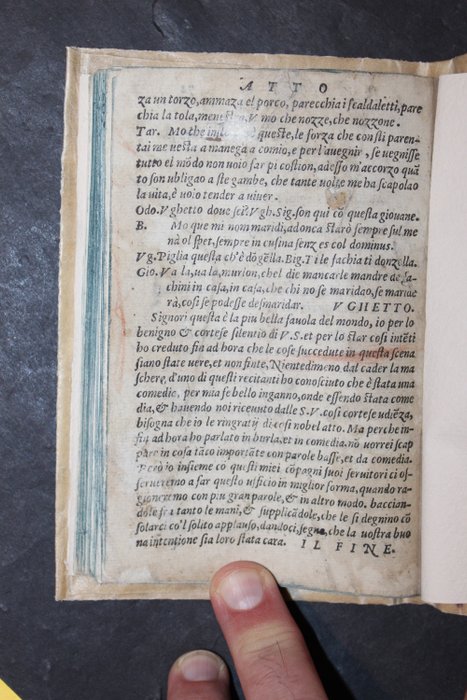 ATTO
za un torzo, ammaza el porco, parecchia i scaldaletti, pare
chia la tola, menestra, V mo che nozze, che nozzone.
Tar. Mo the queste, le forza che con sti paren-
tai me uesta a manega a comio, e per l'auegnir, se uegnisse
tutto el mõdo non uoio far pi costion, adesso m'accorzo quã
to son ubligao a ste gambe, che tante uolte me ha scapolao
la uita, è uoio tender a uiuer.
Odo. Vghetto doue sei? Vgh. Sig. son qui cõ questa giouane.
B. Mo que mi nom maridi, adonca starò sempre sul me
nà ol spet, sempre in cusina senz es col dominus.
Vg. Piglia questa ch'è dõgella. Big. Ti le fachia ti donzella.
Gio. Va la, ua la, murlon, chel die mancarle mandre de fa-
chini in casa, in casa, che chi no se maridao, se marida
rà, cosi se podesse desmaridar. VGHETTO.
Signori questa è la piu bella fauola del mondo, io per lo
benigno & cortese silentio di V.S. et per lo star cosi intẽti
ho creduto fin ad hora che le cose succedute in questa scena
siano state uere, et non finte, Nientedimeno dal cader la ma
schera, d'uno di questi recitanti ho conosciuto che è stata una
comedia, per mia fe bello inganno, onde essendo stata come
dia, & hauendo noi riceuuto dalle S.V. cosi cortese udiẽza,
bisogna che io le ringratij di cosi nobel atto. Ma perche in-
fin ad hora ho parlato in burla, et in comedia, nõ uorrei scap
pare in cosa tãto importãte con parole basse, et da comedia.
Però io insieme cõ questi miei cõpagni suoi seruitori ci of-
feriremo a far questo ufficio in miglior forma, quando ra-
gioneremo con piu gran parole, & in altro modo. bacciãn-
dole fra tanto le mani, & supplicãdole, che le si degnino cõ
solarci co'l solito applauso, dandoci segno, che la uostra buo
na intentione sia loro stata cara. IL FINE.